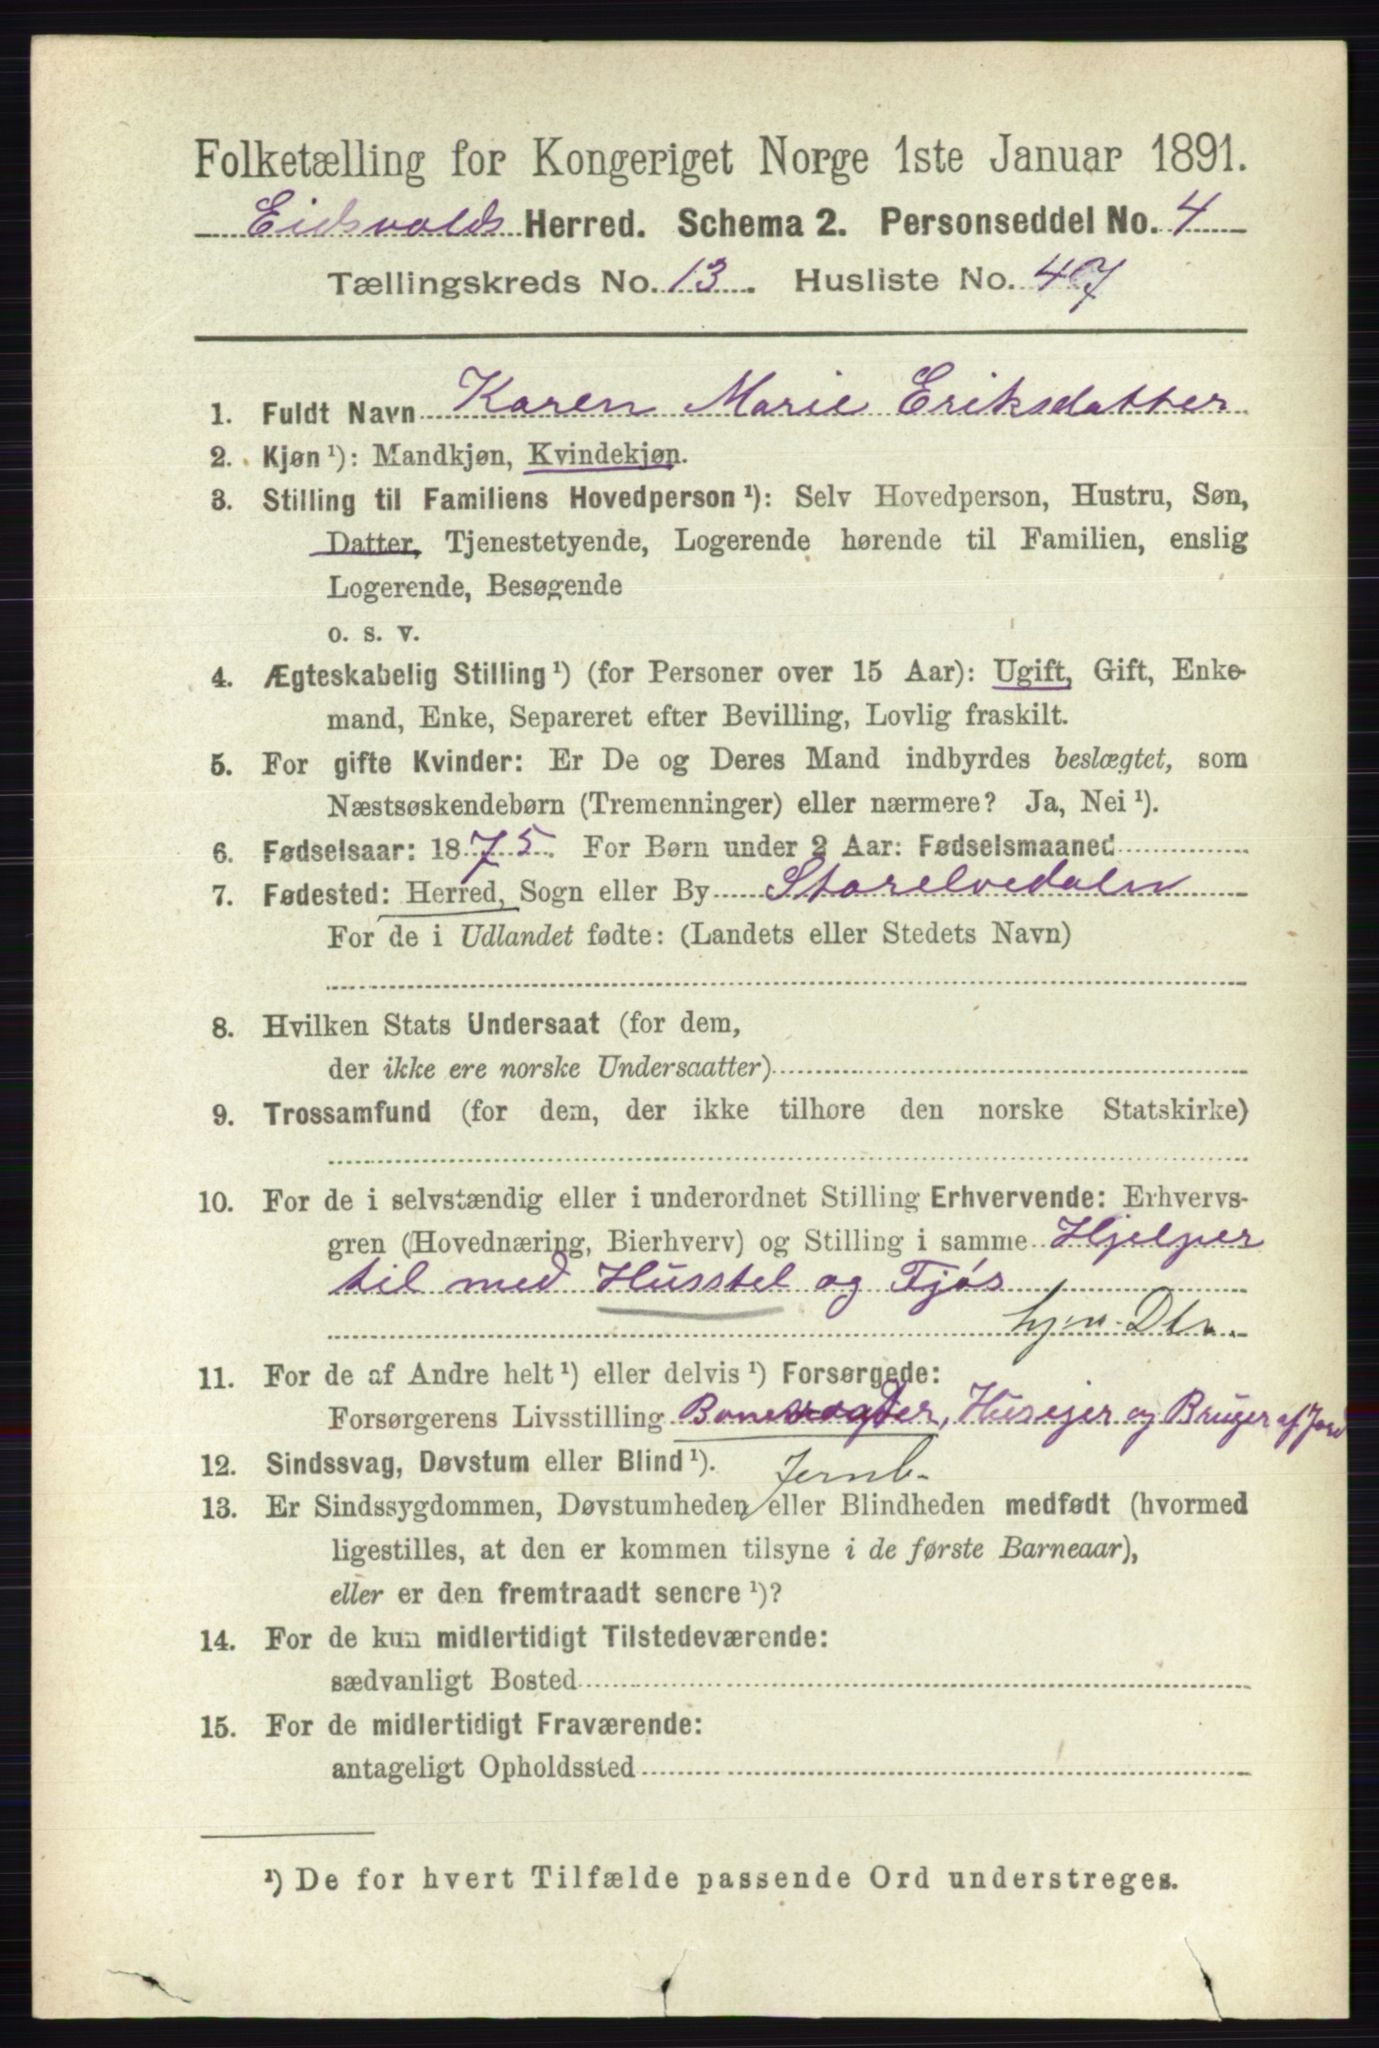 Folketælling for Kongeriget Norge 1ste Januar 1891.
Eidsvolds Herred. Schema 2. Personseddel No. 4
Tællingskreds No. 13. Husliste No. 47
1. Fuldt Navn Karen Marie Eriksdatter
2. Kjøn ¹): Mandkjøn, Kvindekjøn.
3. Stilling til Familiens Hovedperson ¹): Selv Hovedperson, Hustru, Søn,
Datter, Tjenestetyende, Logerende hørende til Familien, enslig
Logerende, Besøgende
o. s. v.
4. Ægteskabelig Stilling ¹) (for Personer over 15 Aar): Ugift, Gift, Enke-
mand, Enke, Separeret efter Bevilling, Lovlig fraskilt.
5. For gifte Kvinder: Er De og Deres Mand indbyrdes beslægtet, som
Næstsøskendebørn (Tremenninger) eller nærmere? Ja, Nei ¹).
6. Fødselsaar: 1875. For Børn under 2 Aar: Fødselsmaaned
7. Fødested: Herred, Sogn eller By Storelvedalen
For de i Udlandet fødte: (Landets eller Stedets Navn)
8. Hvilken Stats Undersaat (for dem,
der ikke ere norske Undersaatter)
9. Trossamfund (for dem, der ikke tilhøre den norske Statskirke)
10. For de i selvstændig eller i underordnet Stilling Erhvervende: Erhvervs-
gren (Hovednæring, Bierhverv) og Stilling i samme Hjelper
til med Husstel og Fjøs
hjv. Dtr.
11. For de af Andre helt ¹) eller delvis ¹) Forsørgede:
Forsørgerens Livsstilling Banevogter, Husejer og Bruger af Jord
12. Sindssvag, Døvstum eller Blind ¹). Jernb.
13. Er Sindssygdommen, Døvstumheden eller Blindheden medfødt (hvormed
ligestilles, at den er kommen tilsyne i de første Barneaar),
eller er den fremtraadt senere ¹)?
14. For de kun midlertidigt Tilstedeværende:
sædvanligt Bosted
15. For de midlertidigt Fraværende:
antageligt Opholdssted
¹) De for hvert Tilfælde passende Ord understreges.